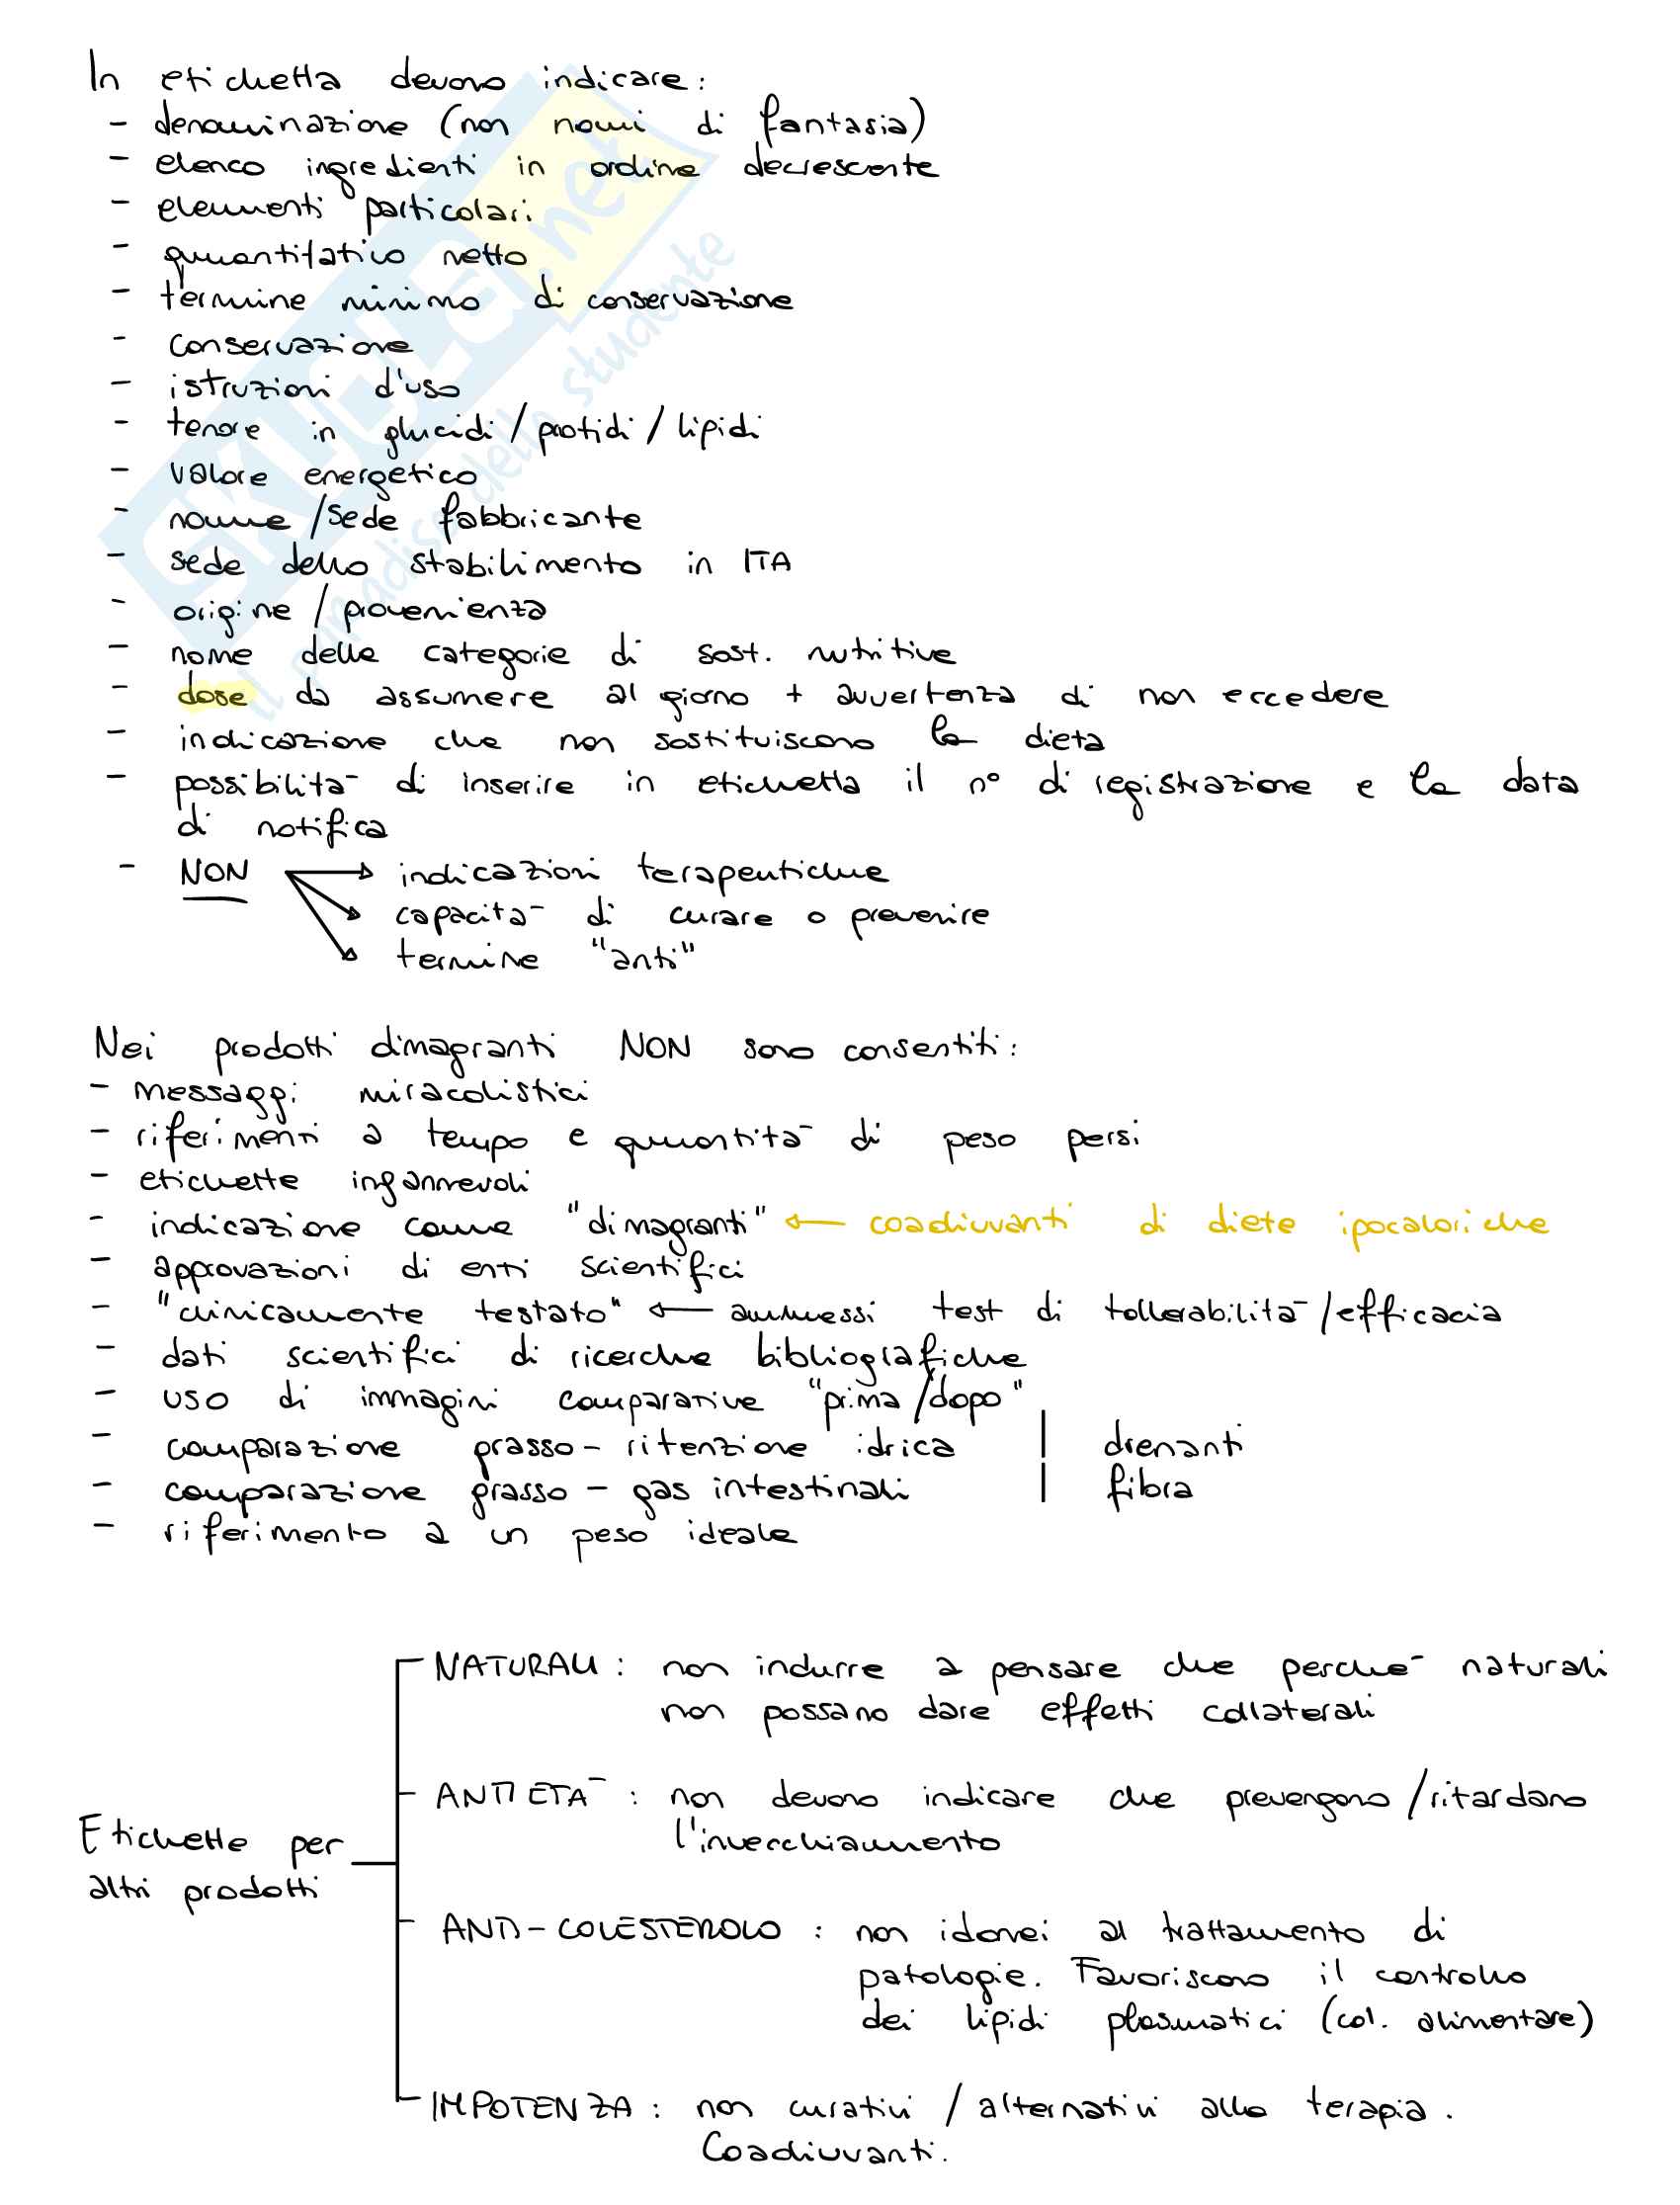 In etichetta devono indicare:
- denominazione (non nomi di fantasia)
- elenco ingredienti in ordine decrescente
- elementi particolari
- quantitativo netto
- termine minimo di conservazione
- conservazione
- istruzioni d'uso
- tenore in glucidi/protidi/lipidi
- valore energetico
- nome/sede fabbricante
- sede dello stabilimento in ITA
- origine/provenienza
- nome delle categorie di sost. nutritive
- dose da assumere al giorno + avvertenza di non eccedere
- indicazione che non sostituiscono la dieta
- possibilità di inserire in etichetta il n° di registrazione e la data
di notifica
- NON → indicazioni terapeutiche
→ capacità di curare o prevenire
→ termine "anti"
Nei prodotti dimagranti NON sono consentiti:
- messaggi miracolistici
- riferimenti a tempo e quantità di peso persi
- etichette ingannevoli
- indicazione come "dimagranti" ← coadiuvanti di diete ipocaloriche
- approvazioni di enti scientifici
- "clinicamente testato" ← ammessi test di tollerabilità/efficacia
- dati scientifici di ricerche bibliografiche
- uso di immagini comparative "prima/dopo"
- comparazione grasso-ritenzione idrica | drenanti
- comparazione grasso - gas intestinali | fibra
- riferimento a un peso ideale
Etichette per
altri prodotti
NATURALI: non indurre a pensare che perché naturali
non possano dare effetti collaterali
ANTIETÀ: non devono indicare che prevengono/ritardano
l'invecchiamento
ANTI-COLESTEROLO: non idonei al trattamento di
patologie. Favoriscono il controllo
dei lipidi plasmatici (col. alimentare)
IMPOTENZA: non curativi / alternativi alla terapia.
Coadiuvanti.
SKUOLA.net
il paradiso dello studente